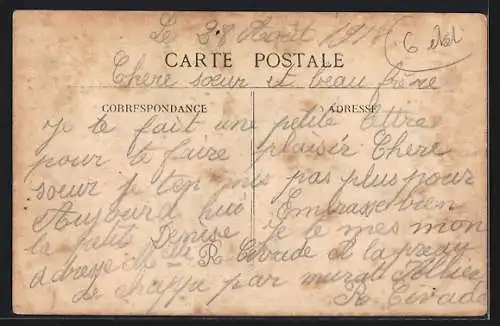 Le 28 Août 191
CARTE POSTALE
Chere sœur et beau frère
CORRESPONDANCE
ADRESSE
Je te fait une petite lettre
pour te faire plaisir Chere
sœur je ten mes pas plus pour
Aujourd hui Embrasse bien
la petit Denise Je te mes mon
adresse Mlle R Civade à la
de par murat Allier
R Civade